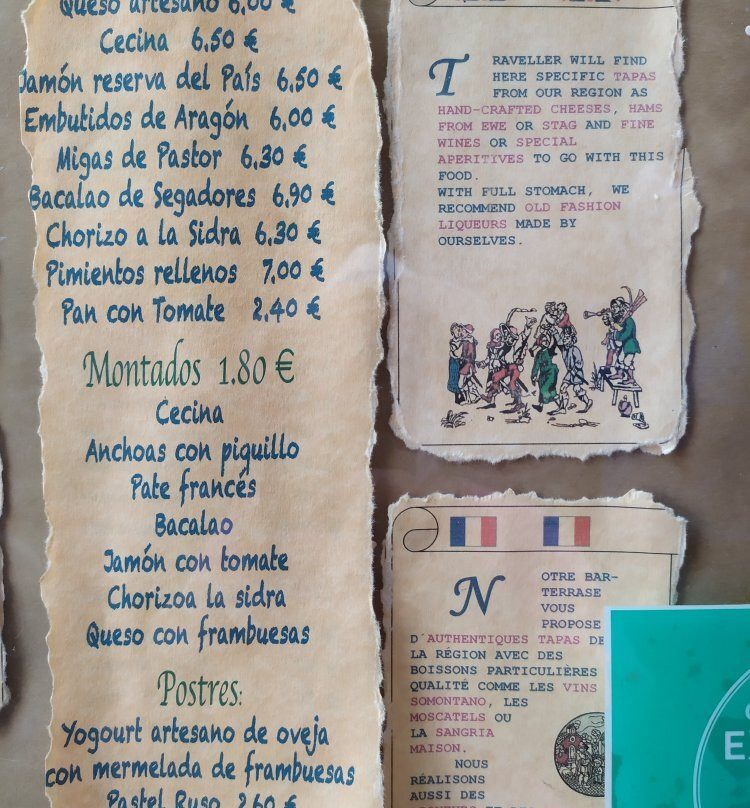 Queso artesano 6,00 €
Cecina 6,50 €
Jamón reserva del País 6,50 €
Embutidos de Aragón 6,00 €
Migas de Pastor 6,30 €
Bacalao de Segadores 6,90 €
Chorizo a la Sidra 6,30 €
Pimientos rellenos 7,00 €
Pan con Tomate 2,40 €
Montados 1.80 €
Cecina
Anchoas con piquillo
Pate francés
Bacalao
Jamón con tomate
Chorizoa la sidra
Queso con frambuesas
Postres:
Yogourt artesano de oveja
con mermelada de frambuesas
Pastel Ruso 2,60 €
TRAVELLER WILL FIND
HERE SPECIFIC TAPAS
FROM OUR REGION AS
HAND-CRAFTED CHEESES, HAMS
FROM EWE OR STAG AND FINE
WINES OR SPECIAL
APERITYVES TO GO WITH THIS
FOOD.
WITH FULL STOMACH, WE
RECOMMEND OLD FASHION
LIQUEURS MADE BY
OURSELVES.
NOTRE BAR-
TERRASE
VOUS
PROPOSE
D´AUTHENTIQUES TAPAS DE
LA RÉGION AVEC DES
BOISSONS PARTICULIÈRES
QUALITÉ COMME LES VINS
SOMONTANO, LES
MOSCATELS OU
LA SANGRIA
MAISON.
NOUS
RÉALISONS
AUSSI DES